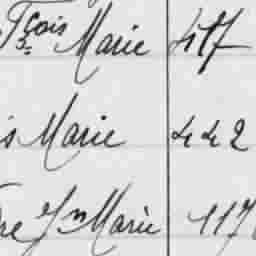 Fçois Marie 417
is Marie 442
re Jn Marie 117